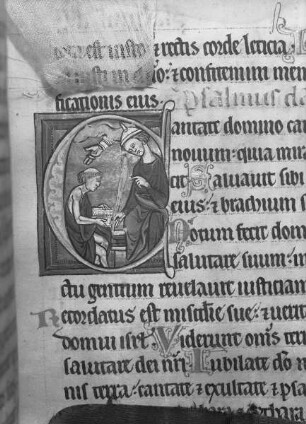 est iusto ⁊ rectis corde leticia
iusti in dño: ⁊ confitemini mem
ficationis eius. Psalmus da
Cantate domino can
nouum: quia mira
cit Saluauit sibi
eius: ⁊ brachium s
Notum fecit dom
salutare suum: in
ctu gentium reuelauit iusticiam
Recordatus est misc̄die sue: ⁊ uerit
domui isrl̄ Viderunt om̄s ter
salutare dei nr̄i Iubilate dō
nis terra: cantate ⁊ exultate ⁊ psa